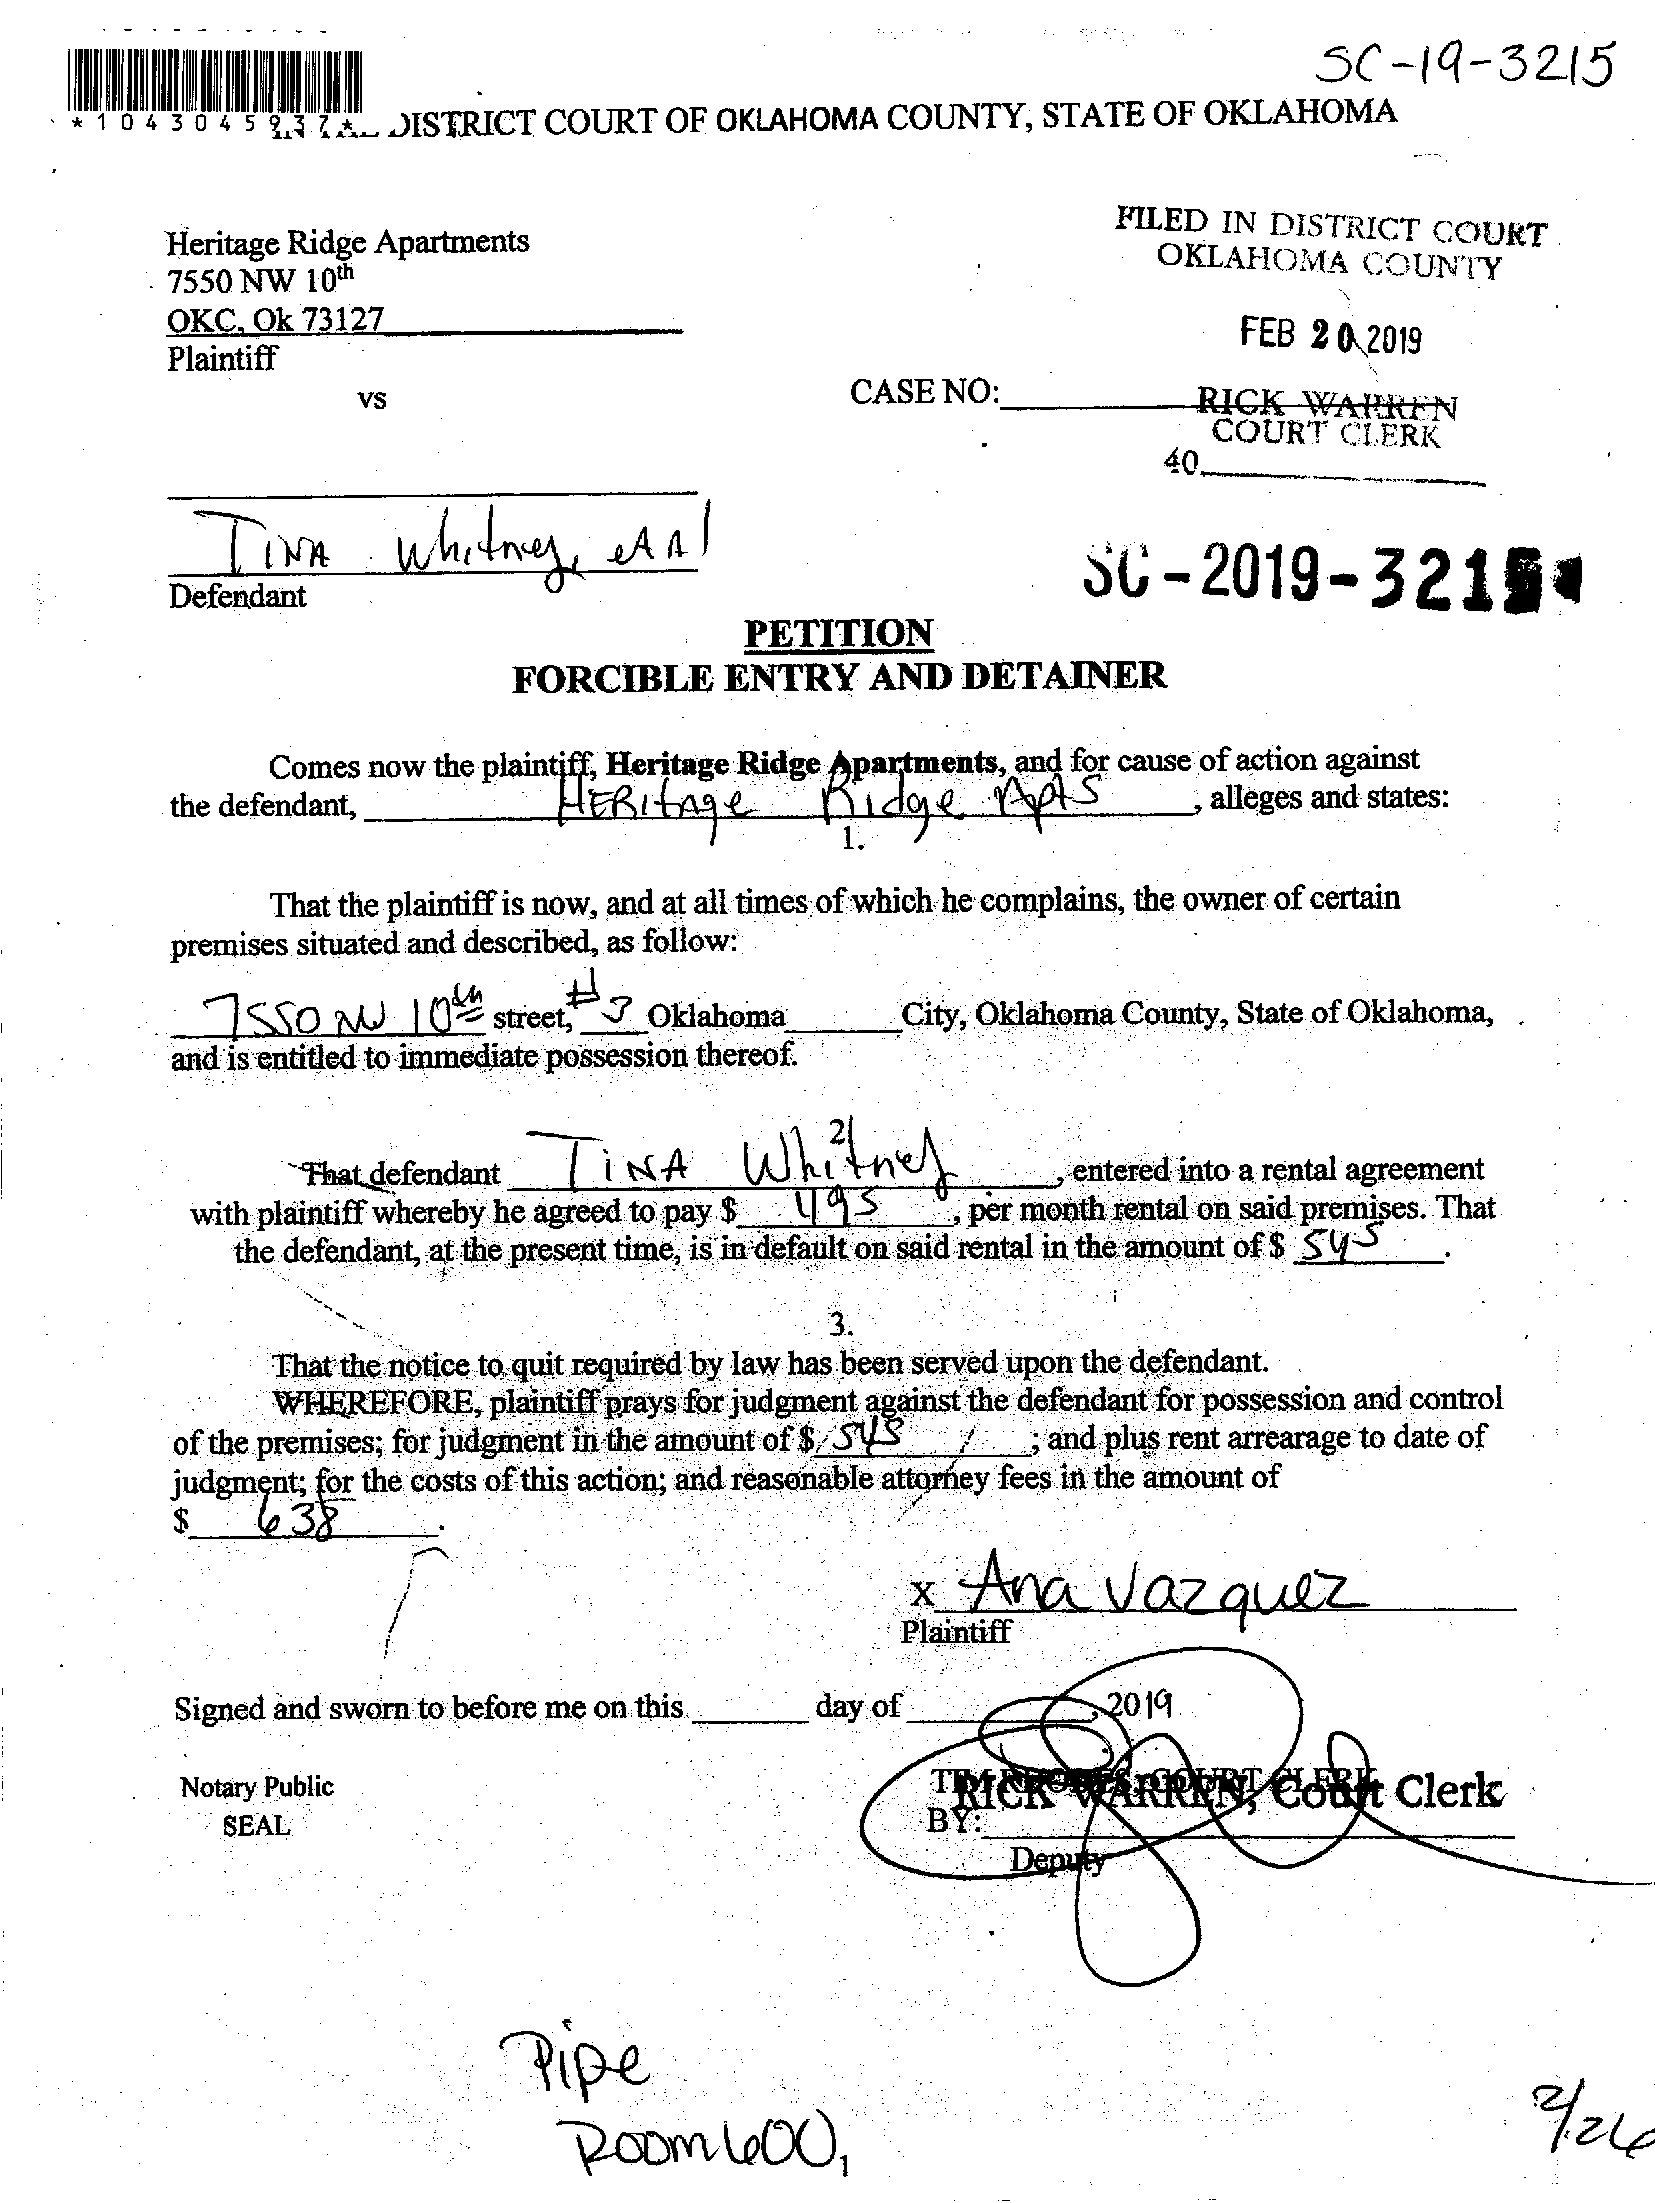 SC-19-3215
*1043045937*
DISTRICT COURT OF OKLAHOMA COUNTY, STATE OF OKLAHOMA
FILED IN DISTRICT COURT
OKLAHOMA COUNTY
Heritage Ridge Apartments
7550 NW 10th
OKC, Ok 73127
FEB 20 2019
Plaintiff
vs
CASE NO:
RICK WARREN
COURT CLERK
40
TINA Whitney, et Al
SC-2019-3215
Defendant
PETITION
FORCIBLE ENTRY AND DETAINER
Comes now the plaintiff, Heritage Ridge Apartments, and for cause of action against
the defendant, HERitAge Ridge Apts, alleges and states:
1.
That the plaintiff is now, and at all times of which he complains, the owner of certain
premises situated and described, as follow:
7550 NW 10th street, # 3 Oklahoma City, Oklahoma County, State of Oklahoma,
and is entitled to immediate possession thereof.
2
That defendant TiNA Whitney, entered into a rental agreement
with plaintiff whereby he agreed to pay $ 495, per month rental on said premises. That
the defendant, at the present time, is in default on said rental in the amount of $ 545.
3.
That the notice to quit required by law has been served upon the defendant.
WHEREFORE, plaintiff prays for judgment against the defendant for possession and control
of the premises; for judgment in the amount of $ 545; and plus rent arrearage to date of
judgment; for the costs of this action; and reasonable attorney fees in the amount of
$ 638.
x Ana Vazquez
Plaintiff
Signed and sworn to before me on this day of , 2019
Notary Public
RICK WARREN, Court Clerk
SEAL
BY:
Deputy
Pipe
Room 600,
2/26